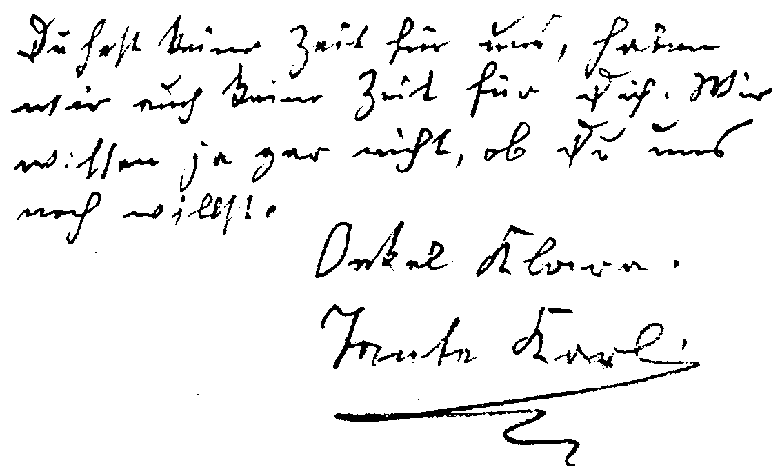 Du hast keine Zeit für uns, haben
wir auch keine Zeit für Dich. Wir
wissen ja gar nicht, ob Du uns
noch willst.
Onkel Klara.
Tante Karl.